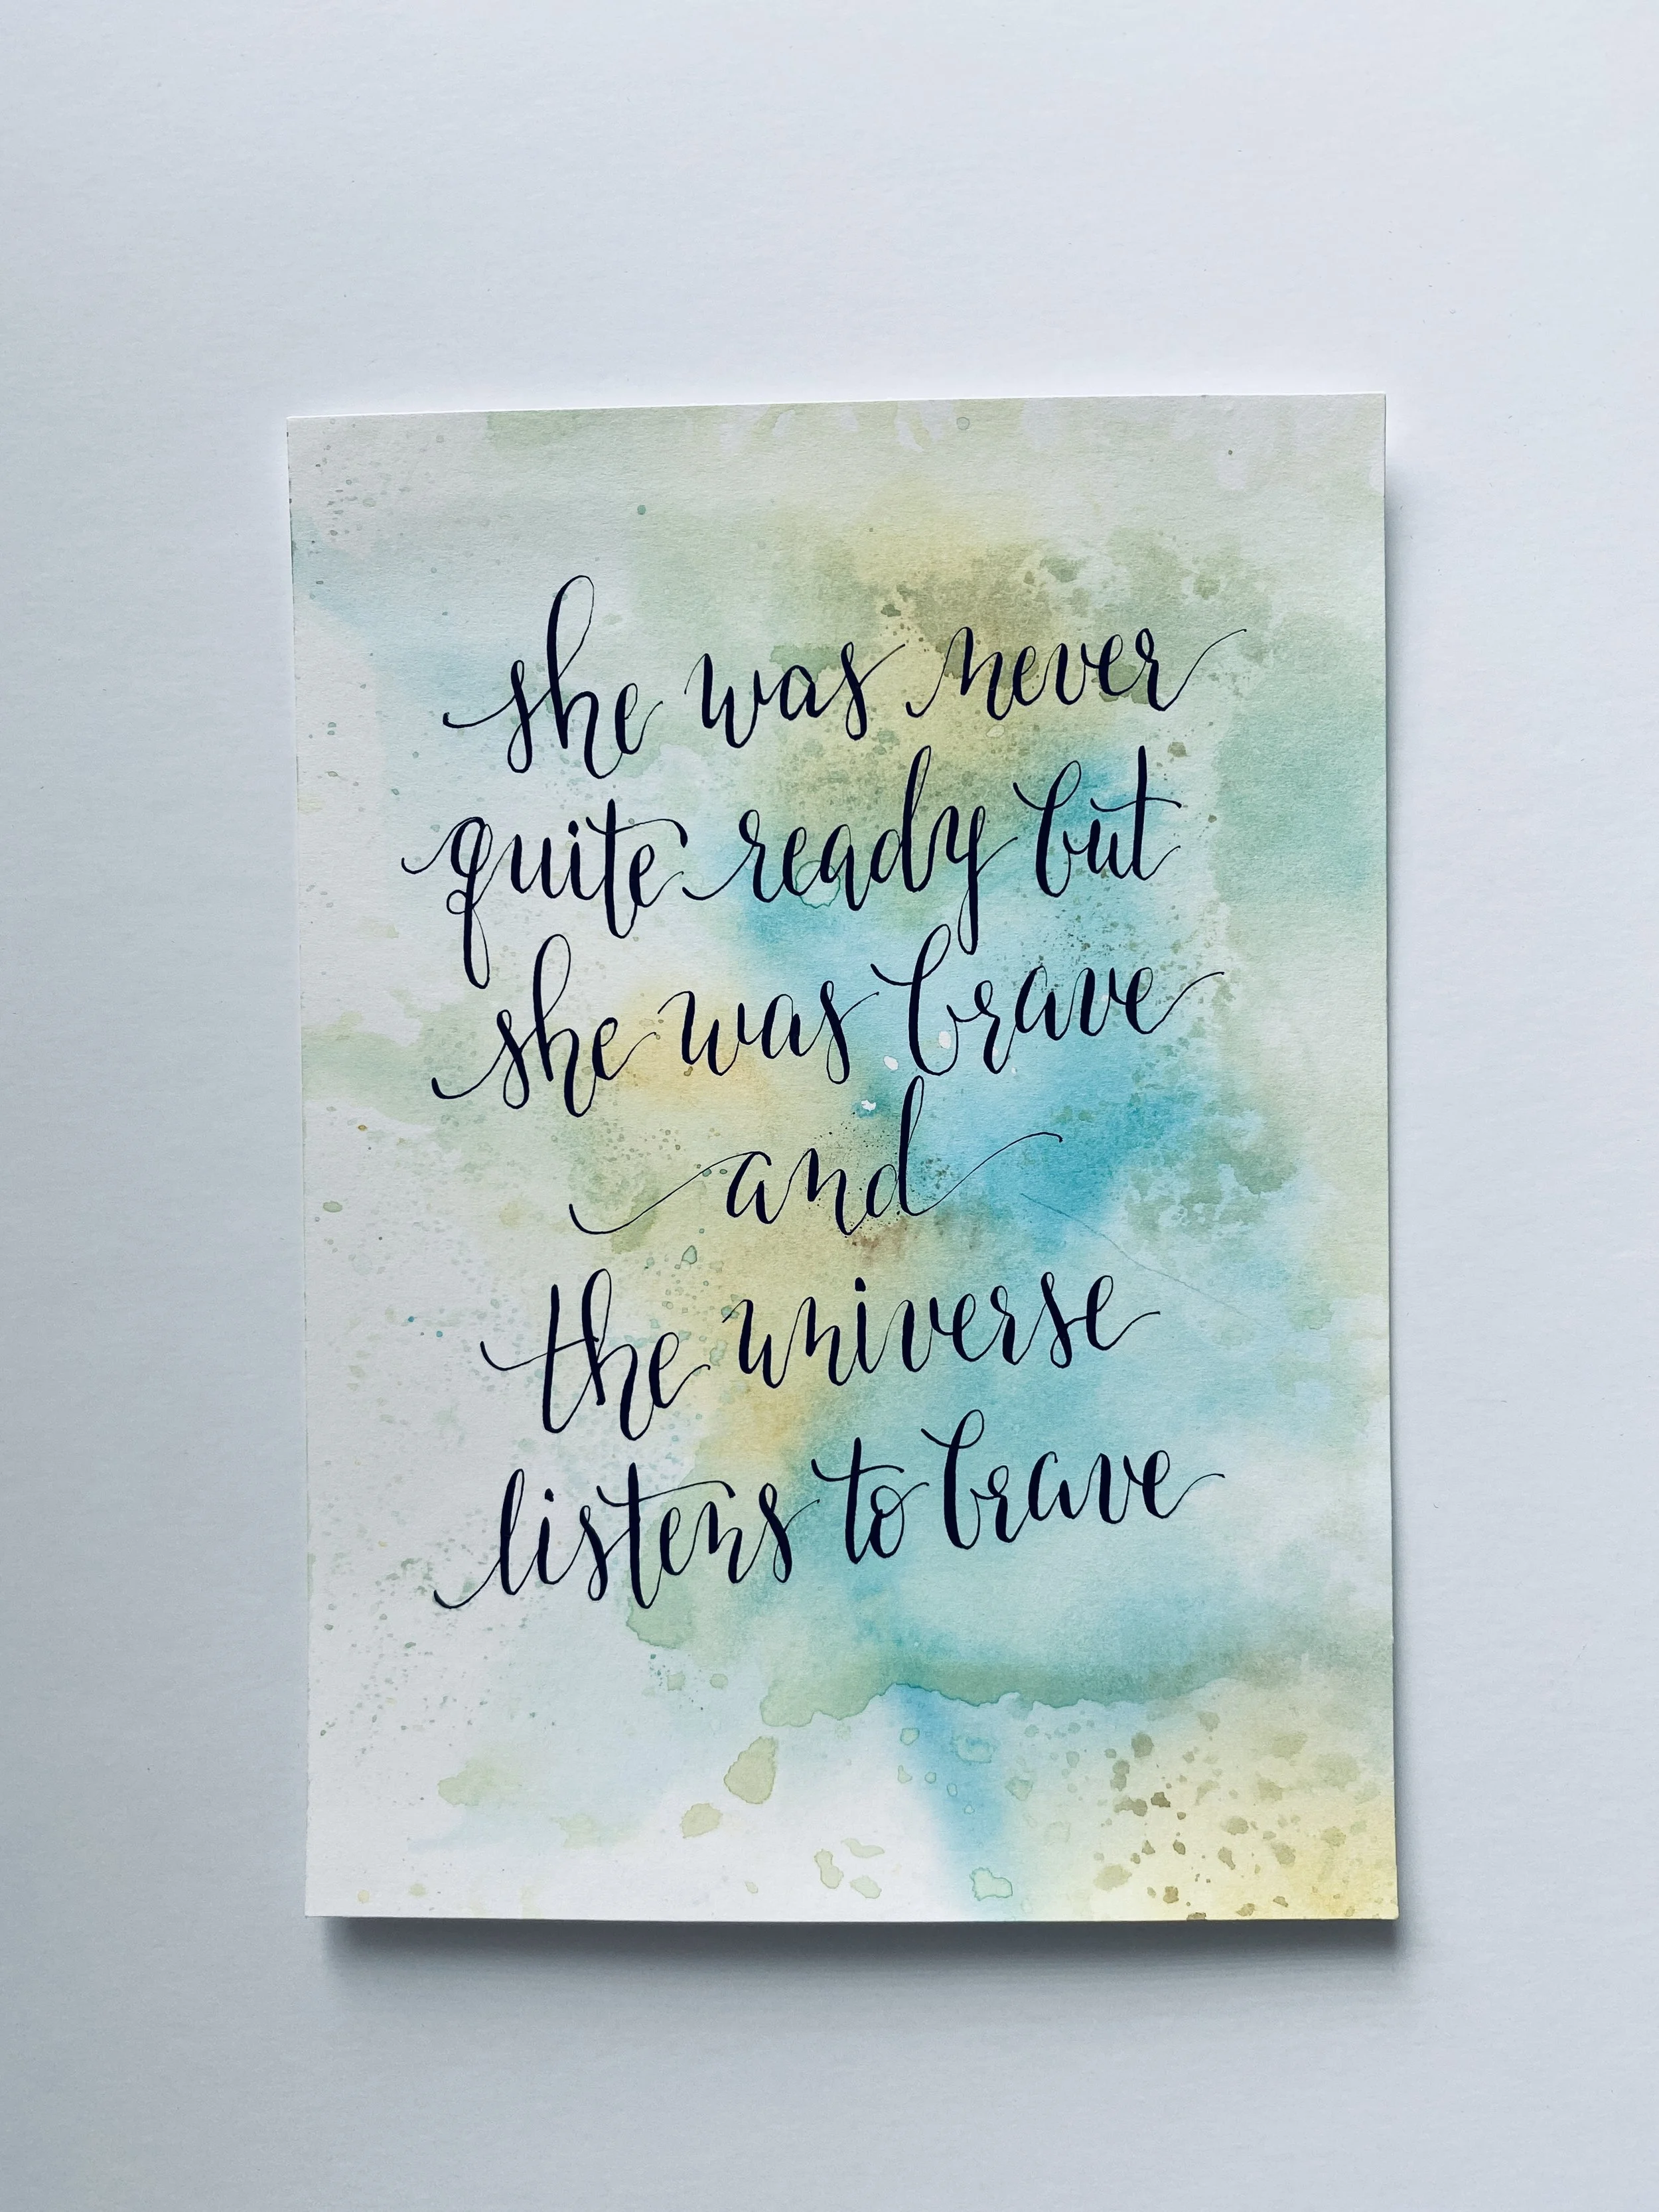 she was never
quite ready but
she was brave
and
the universe
listens to brave